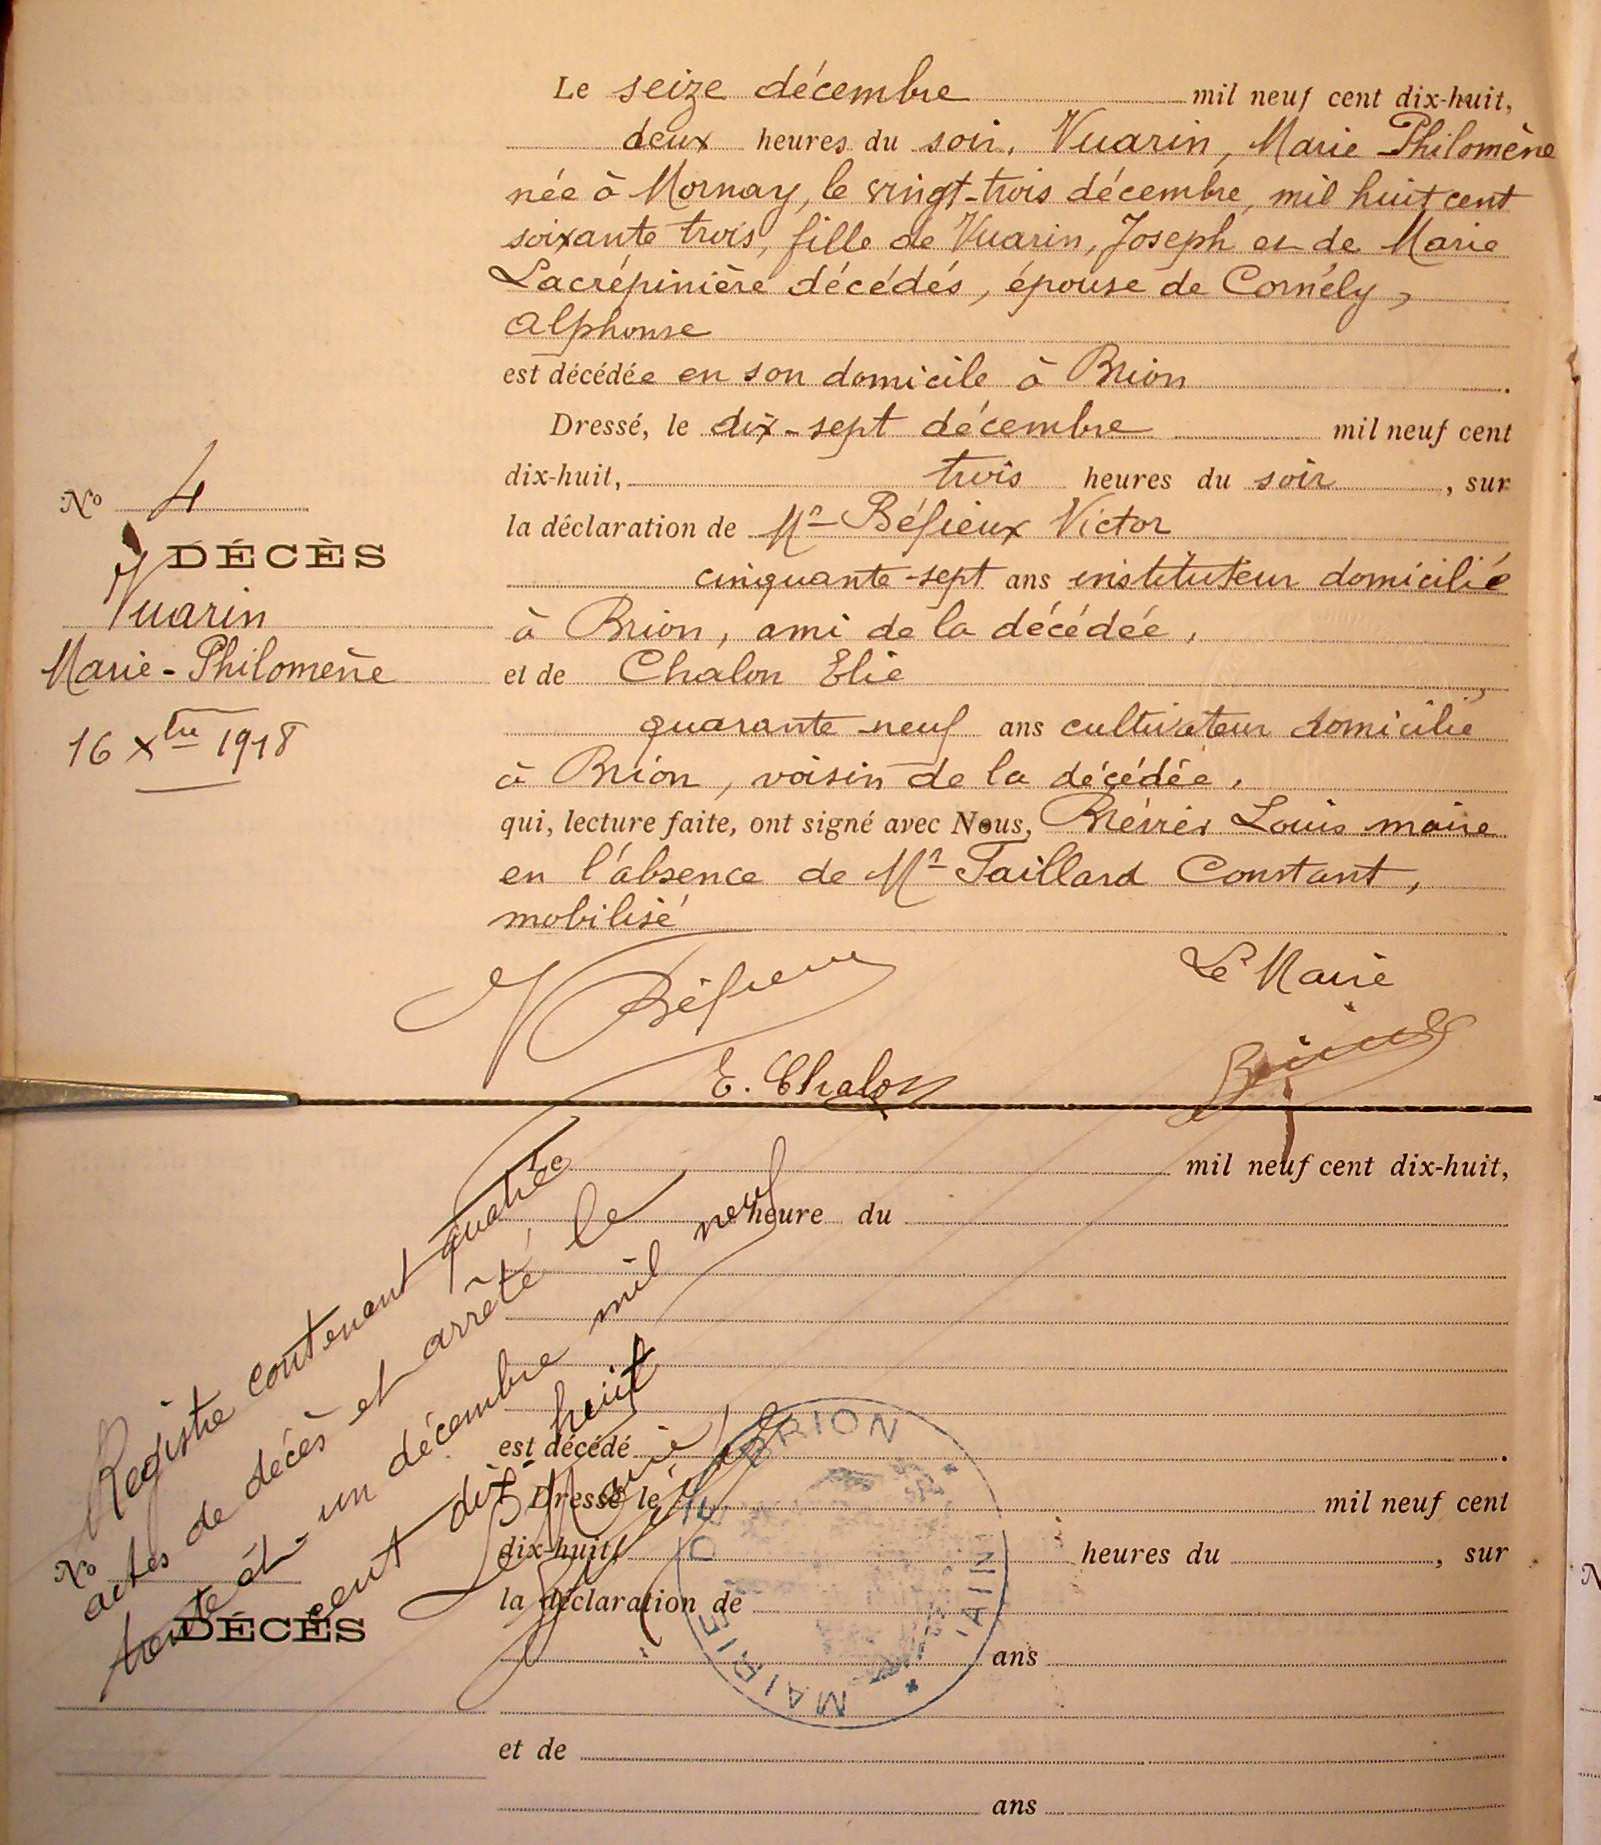 Le seize décembre mil neuf cent dix-huit,
deux heures du soir, Vuarin, Marie Philomène
née à Mornay, le vingt-trois décembre, mil huit cent
soixante trois, fille de Vuarin, Joseph et de Marie
Lacrépinière décédés, épouse de Cornély,
Alphonse
est décédée en son domicile à Brion.
Dressé, le dix-sept décembre mil neuf cent
dix-huit, trois heures du soir, sur
la déclaration de Mr Béfieux Victor
cinquante-sept ans instituteur domicilié
à Brion, ami de la décédée,
et de Chalon Elie,
quarante neuf ans cultivateur domicilié
à Brion, voisin de la décédée,
qui, lecture faite, ont signé avec Nous, Louis maire
en l'absence de Mr Taillard Constant,
mobilisé
No 4
DÉCÈS
Vuarin
Marie-Philomène
16 Xbre 1918
V Béfieux
Le Maire
E. Chalon
mil neuf cent dix-huit,
heure du
est décédé.
Dressé le mil neuf cent
dix-huit, heures du , sur
la déclaration de
ans
et de
ans
No
DÉCÈS
Registre contenant quatre
actes de décès et arrêté le
trente et un décembre mil neuf
cent dix-huit
Le Maire
MAIRIE DE BRION
(AIN)